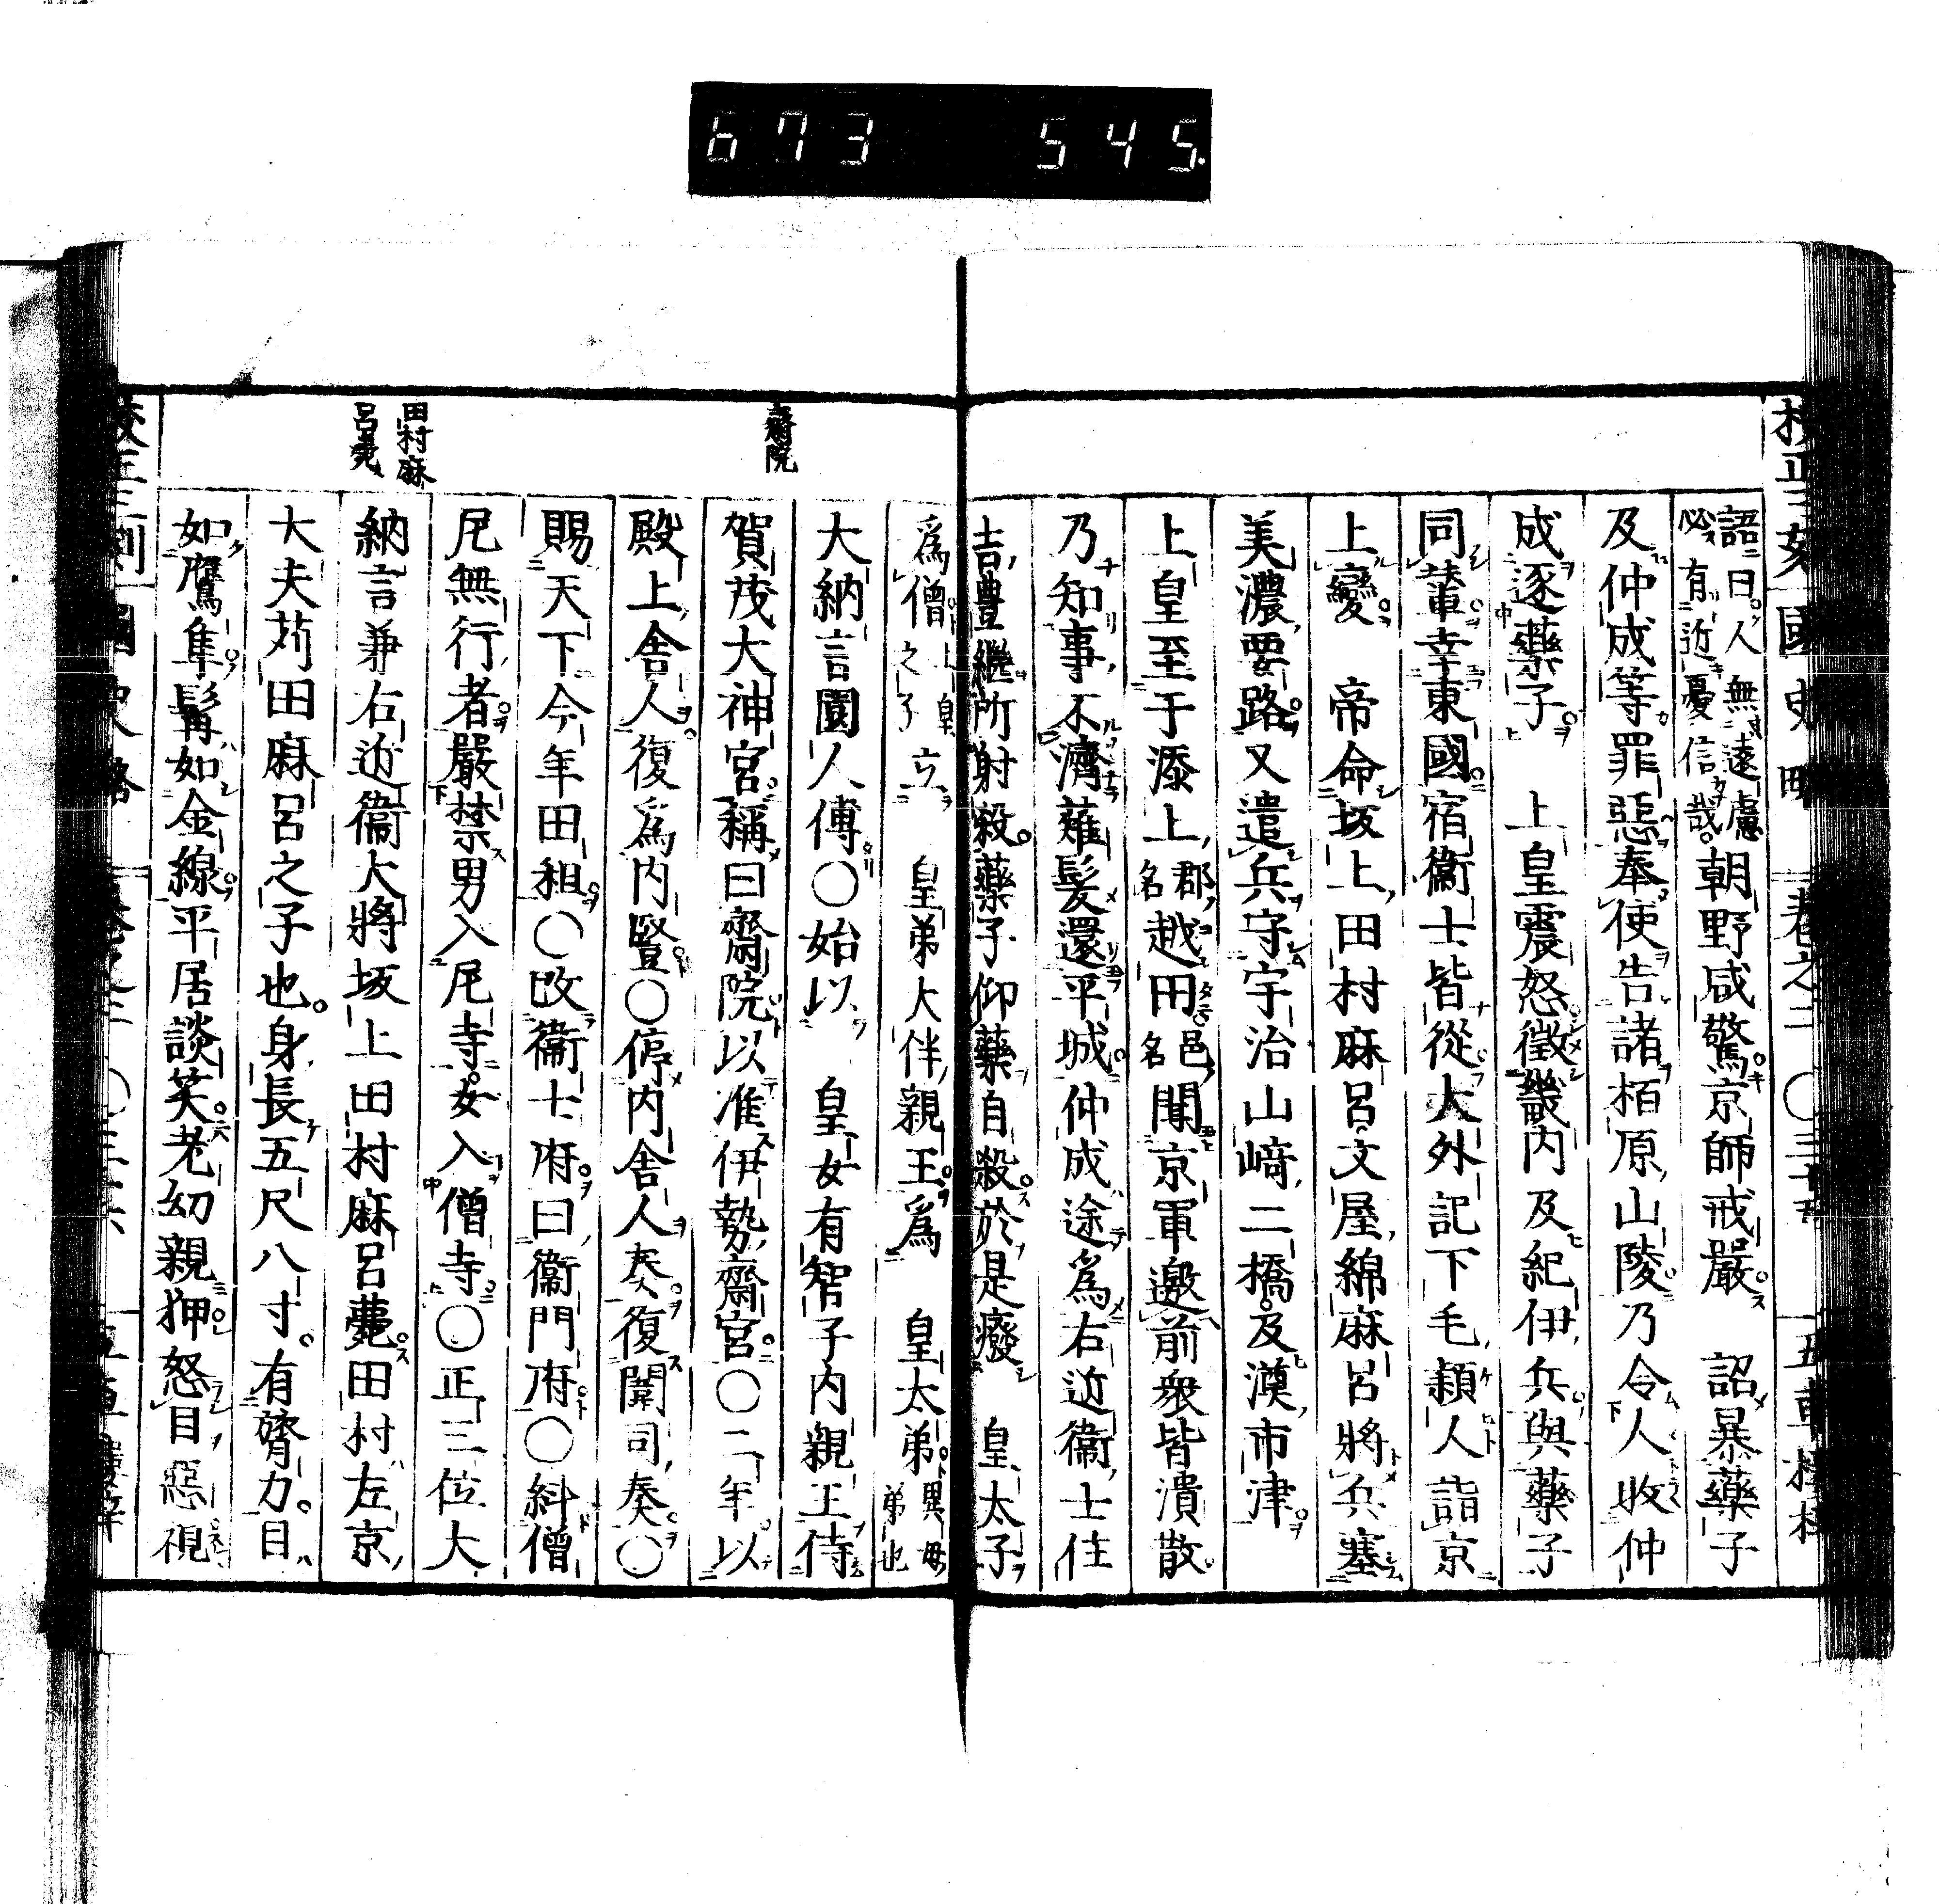 673 545.
語曰人無遠慮
必有近憂信哉
朝野咸驚京師戒嚴　詔暴藥子
及仲成等罪惡奉使告諸栢原山陵乃令人收仲
成逐藥子　上皇震怒徵畿内及紀伊兵與藥子
同輦幸東國宿衞士皆從大外記下毛穎人詣京
上變　帝命坂上田村麻呂文屋綿麻呂將兵塞
美濃要路又遣兵守宇治山﨑二橋及澱市津
上皇至于添上郡名越田邑名聞京軍邀前衆皆潰散
乃知事不濟薙髮還平城仲成途爲右近衞士住
吉豊繼所射殺藥子仰藥自殺於是癈　皇太子
爲僧上皇之子立　皇弟大伴親王爲　皇太弟異母弟也
齋院
大納言園人傅〇始以　皇女有智子内親王侍
賀茂大神宮稱曰齋院以准伊勢齋宮〇二年以
殿上舎人復爲内豎〇停内舎人奏復闈司奏〇
賜天下今年田租〇改衞士府曰衞門府〇糾僧
尼無行者嚴禁男入尼寺女入僧寺〇正三位大
田村麻
呂薨
納言兼右近衞大將坂上田村麻呂薨田村左京
大夫苅田麻呂之子也身長五尺八寸有膂力目
如鷹隼髯如金線平居談笑老幼親狎怒目惡視